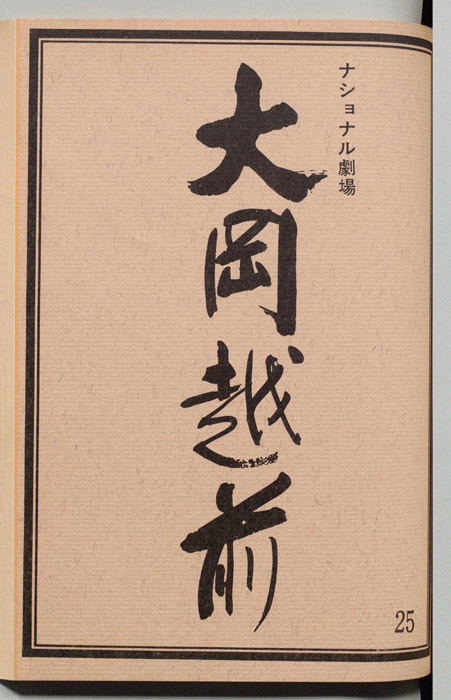 ナショナル劇場
大岡越前
25